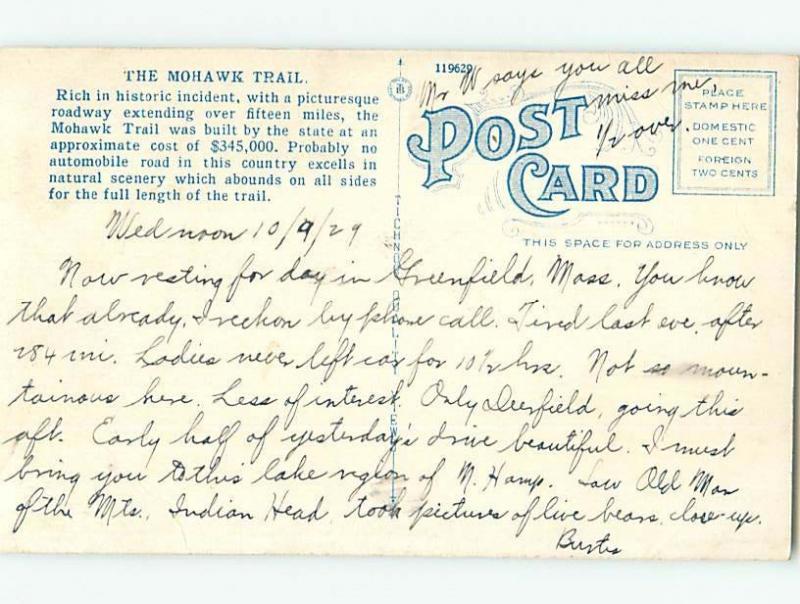 THE MOHAWK TRAIL.
Rich in historic incident, with a picturesque
roadway extending over fifteen miles, the
Mohawk Trail was built by the state at an
approximate cost of $345,000. Probably no
automobile road in this country excells in
natural scenery which abounds on all sides
for the full length of the trail.
119629
Mr W says you all
miss me,
1/2 over.
POST
CARD
PLACE
STAMP HERE
DOMESTIC
ONE CENT
FOREIGN
TWO CENTS
THIS SPACE FOR ADDRESS ONLY
Wed noon 10/9/29
Now resting for day in Greenfield, Mass. You know
that already, I reckon by phone call. Tired last eve, after
284 mi. Ladies never left car for 10 1/2 hrs. Not so moun-
tainous here. Less of interest. Only Deerfield, going this
aft. Early half of yesterday's drive beautiful. I must
bring you to this lake region of N. Hamp. Saw Old Man
of the Mts., Indian Head, took pictures of live bears, close-up.